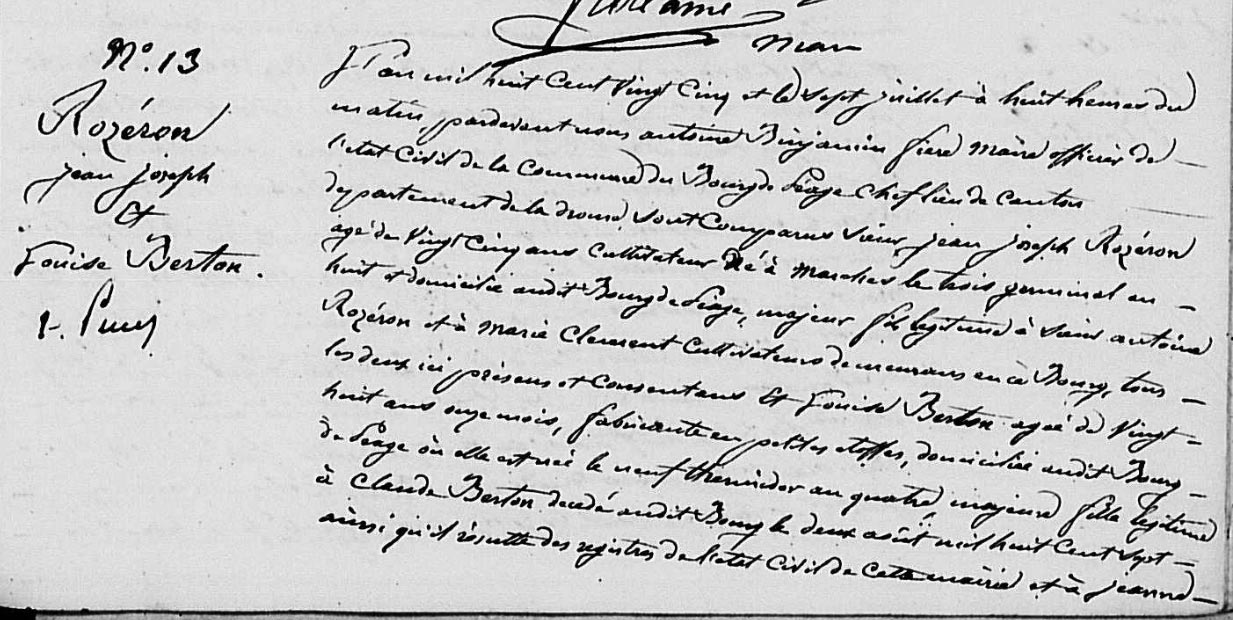 maire
N°. 13
Rozéron
jean joseph
Et
Louise Berton.
L'an mil huit Cent Vingt Cinq et le Sept juillet à huit heures du
matin pardevant nous antoine Binjamin fiere maire officier de
l'etat Civil de la Commune du Bourg de Péage Chef lieu de Canton
departement de la drome, sont Comparus sieur jean joseph Rozéron
agé de Vingt Cinq ans Cultivateur né à marches le trois germinal an
huit et domicilié audit Bourg de Péage, majeur fils legitime à sieur antoine
Rozéron et à marie Clement Cultivateurs demeurans en ce Bourg, tous
les deux ici présens et Consentans Et Louise Berton agée de Vingt
huit ans onze mois, fabricante en petites etoffes, domiciliée audit Bourg
de Péage où elle est née le neuf thermidor an quatre, majeure fille legitime
à Claude Berton decedé audit Bourg le deux août mil huit Cent Sept
ainsi qu'il résulte des registres de l'etat Civil de Cette mairie et à jeanne